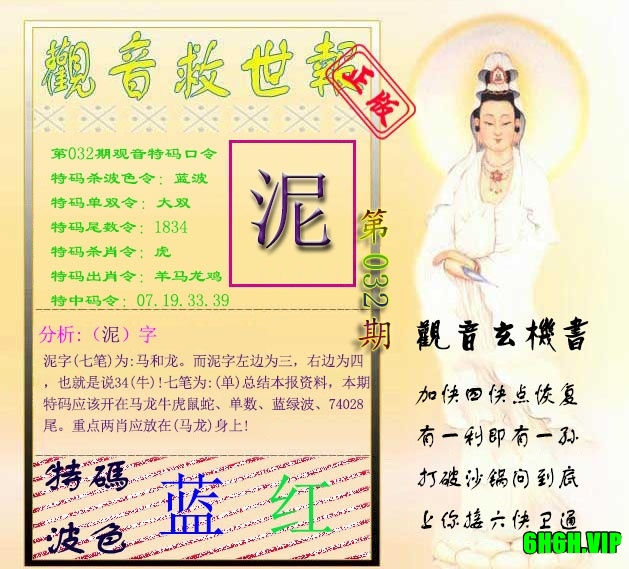 觀音救世報
正版
第032期观音特码口令
特码杀波色令：蓝波
特码单双令：大双
特码尾数令：1834
特码杀肖令：虎
特码出肖令：羊马龙鸡
特中码令：07.19.33.39
泥
第032期
分析:（泥）字
泥字(七笔)为:马和龙。而泥字左边为三，右边为四
，也就是说34(牛)!七笔为:(单)总结本报资料，本期
特码应该开在马龙牛虎鼠蛇、单数、蓝绿波、74028
尾。重点两肖应放在(马龙)身上!
特碼
波色
蓝 红
觀音玄機書
加快四快点恢复
有一利即有一孙
打破沙锅问到底
上你接六快卫通
6H6H.VIP